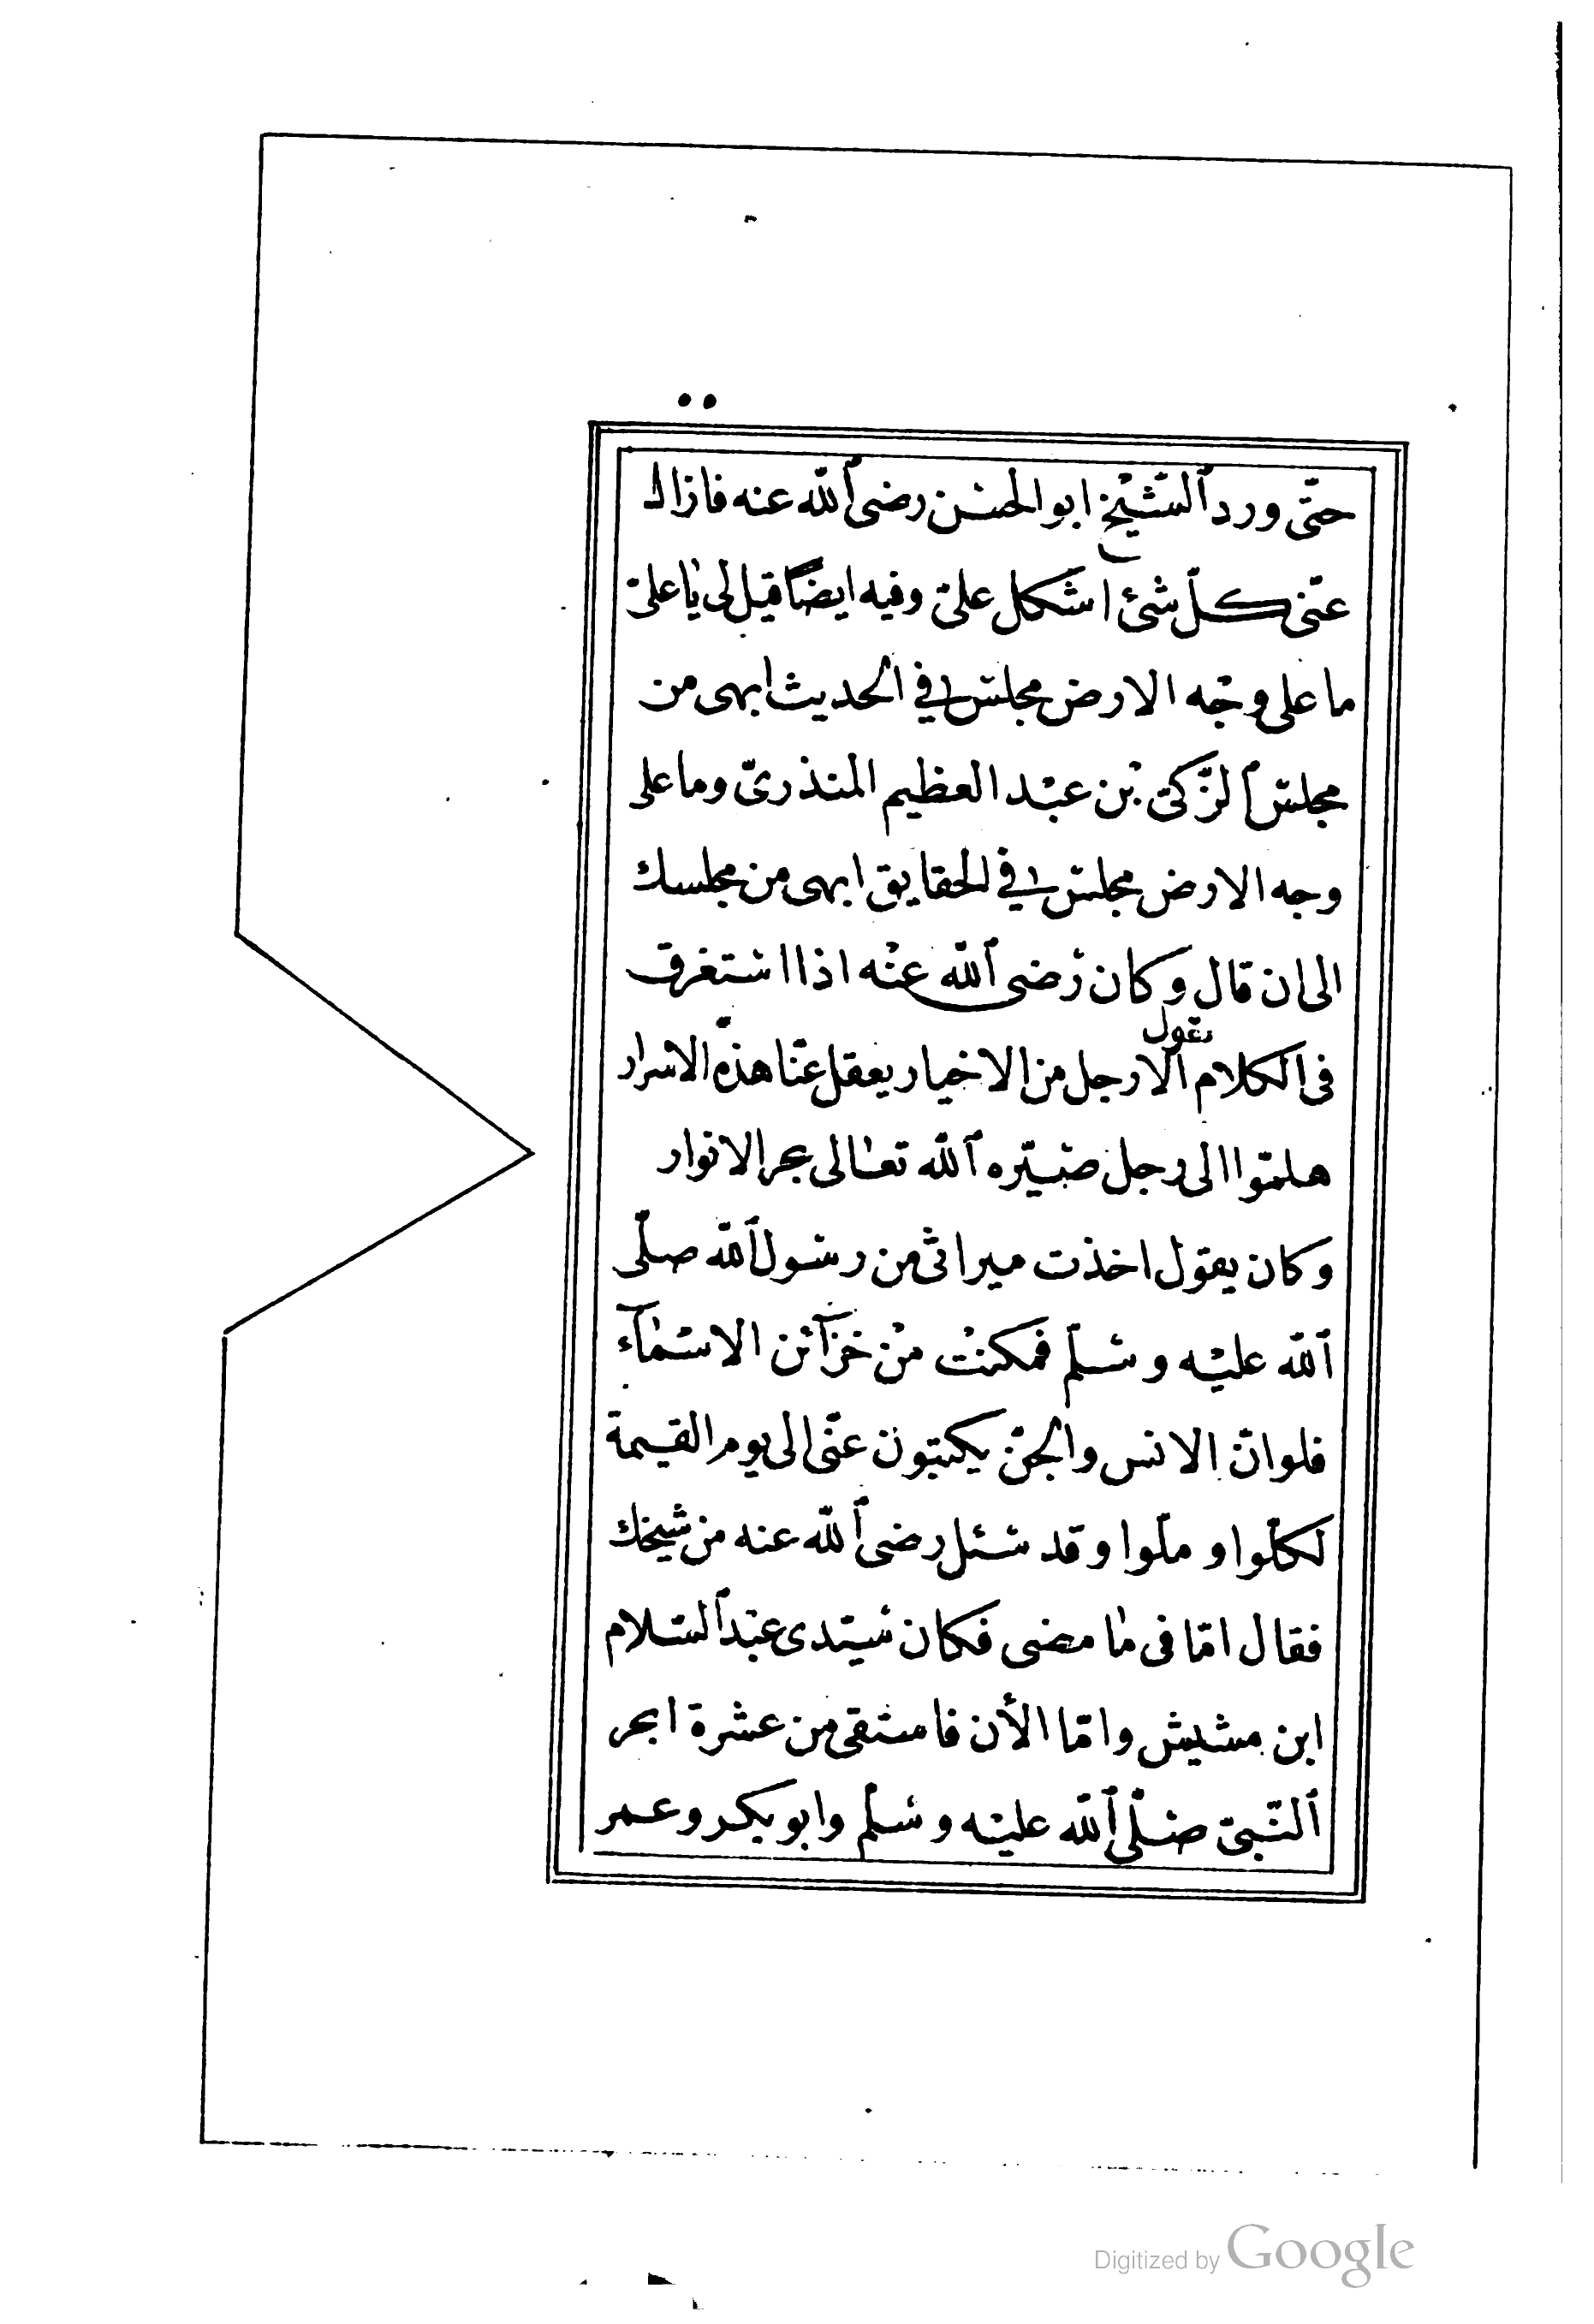 حتّى ورد الشّيخ ابو الحسن رضى الله عنه فازال
عنّى كلّ شئ اشكل علىّ وفيه ايضًا قيل لى يا علىّ
ما على وجه الارض مجلس فى الحديث ابهى من
مجلس الزّكىّ بن عبد العظيم المنذرىّ وما على
وجه الارض مجلس فى الحقايق ابهى من مجلسك
الى ان قال وكان رضى الله عنه اذا استغرق
يقول
فى الكلام الا رجل من الاخيار يعقل عنّا هذه الاسرار
هلمّوا الى رجل صيّره الله تعالى بحر الانوار
وكان يقول اخذت ميراثى من رسول الله صلّى
الله عليه وسلّم فمكنت من خزآئن الاسمآء
فلو انّ الانس والجنّ يكتبون عنّى الى يوم القيمة
لكلّوا وملّوا وقد سئل رضى الله عنه من شيخك
فقال امّا فى ما مضى فكان سيّدى عبد السّلام
ابن مشيش وامّا الأن فاستقى من عشرة ابحر
النّبىّ صلّى الله عليه وسلّم وابو بكر وعمر
Digitized by Google